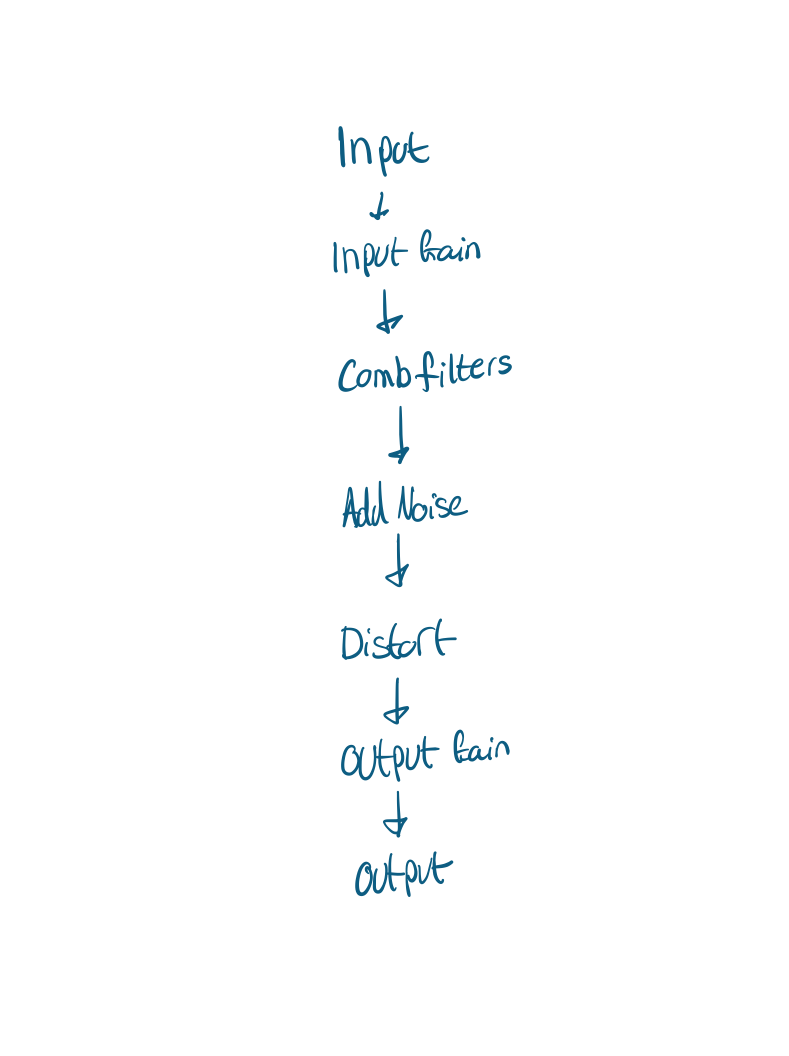 Input
Input Gain
Combfilters
Add Noise
Distort
Output Gain
Output